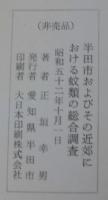 半田市およびその近郊に
おける蚊類の総合調査
(非売品)
昭和五十二年十月一日
著者 正垣幸男
発行者 愛知県半田市
印刷者 大日本印刷株式会社